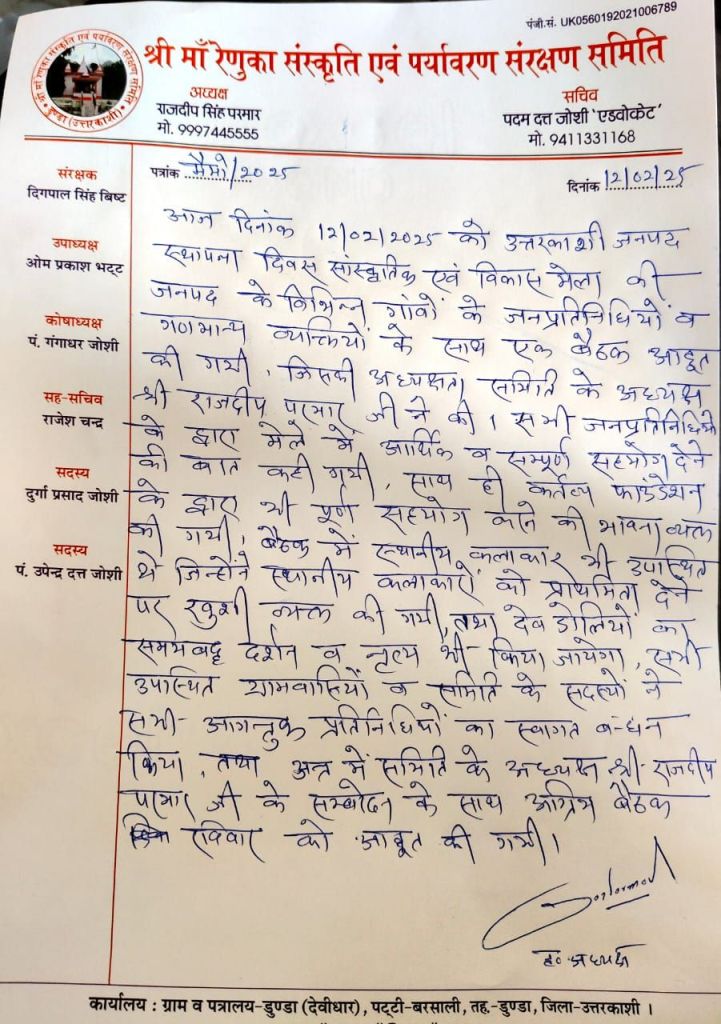 पंजी.सं. UK0560192021006789
श्री माँ रेणुका संस्कृति एवं पर्यावरण संरक्षण समिति
श्री माँ रेणुका संस्कृति एवं पर्यावरण संरक्षण समिति
डुण्डा (उत्तरकाशी)
अध्यक्ष
राजदीप सिंह परमार
मो. 9997445555
सचिव
पदम दत्त जोशी 'एडवोकेट'
मो. 9411331168
संरक्षक
दिगपाल सिंह बिष्ट
उपाध्यक्ष
ओम प्रकाश भट्ट
कोषाध्यक्ष
पं. गंगाधर जोशी
सह-सचिव
राजेश चन्द्र
सदस्य
दुर्गा प्रसाद जोशी
सदस्य
पं. उपेन्द्र दत्त जोशी
पत्रांक मैमो/2025
दिनांक 12/02/25
आज दिनांक 12/02/2025 को उत्तरकाशी जनपद
स्थापना दिवस सांस्कृतिक एवं विकास मेला की
जनपद के विभिन्न गांवों के जनप्रतिनिधियों व
गणमान्य व्यक्तियों के साथ एक बैठक आहूत
की गयी, जिसकी अध्यक्षता समिति के अध्यक्ष
श्री राजदीप परमार जी ने की। सभी जनप्रतिनिधियों
के द्वारा मेले में आर्थिक व सम्पूर्ण सहयोग देने
की बात कही गयी, साथ ही कर्तव्य फाउंडेशन
के द्वारा भी पूर्ण सहयोग करने की भावना व्यक्त
की गयी, बैठक में स्थानीय कलाकार भी उपस्थित
थे जिन्होंने स्थानीय कलाकारों को प्राथमिता देने
पर खुशी व्यक्त की गयी, तथा देव डोलियों का
समयबद्ध दर्शन व नृत्य भी किया जायेगा, सभी
उपस्थित ग्रामवासियों व समिति के सदस्यों ने
सभी आगन्तुक प्रतिनिधियों का स्वागत बन्धन
किया, तथा अन्त में समिति के अध्यक्ष श्री राजदीप
परमार जी के सम्बोदन के साथ अग्रिम बैठक
रविवार को आहूत की गयी।
ह० अध्यक्ष
कार्यालय : ग्राम व पत्रालय-डुण्डा (देवीधार), पट्टी-बरसाली, तह.-डुण्डा, जिला-उत्तरकाशी ।